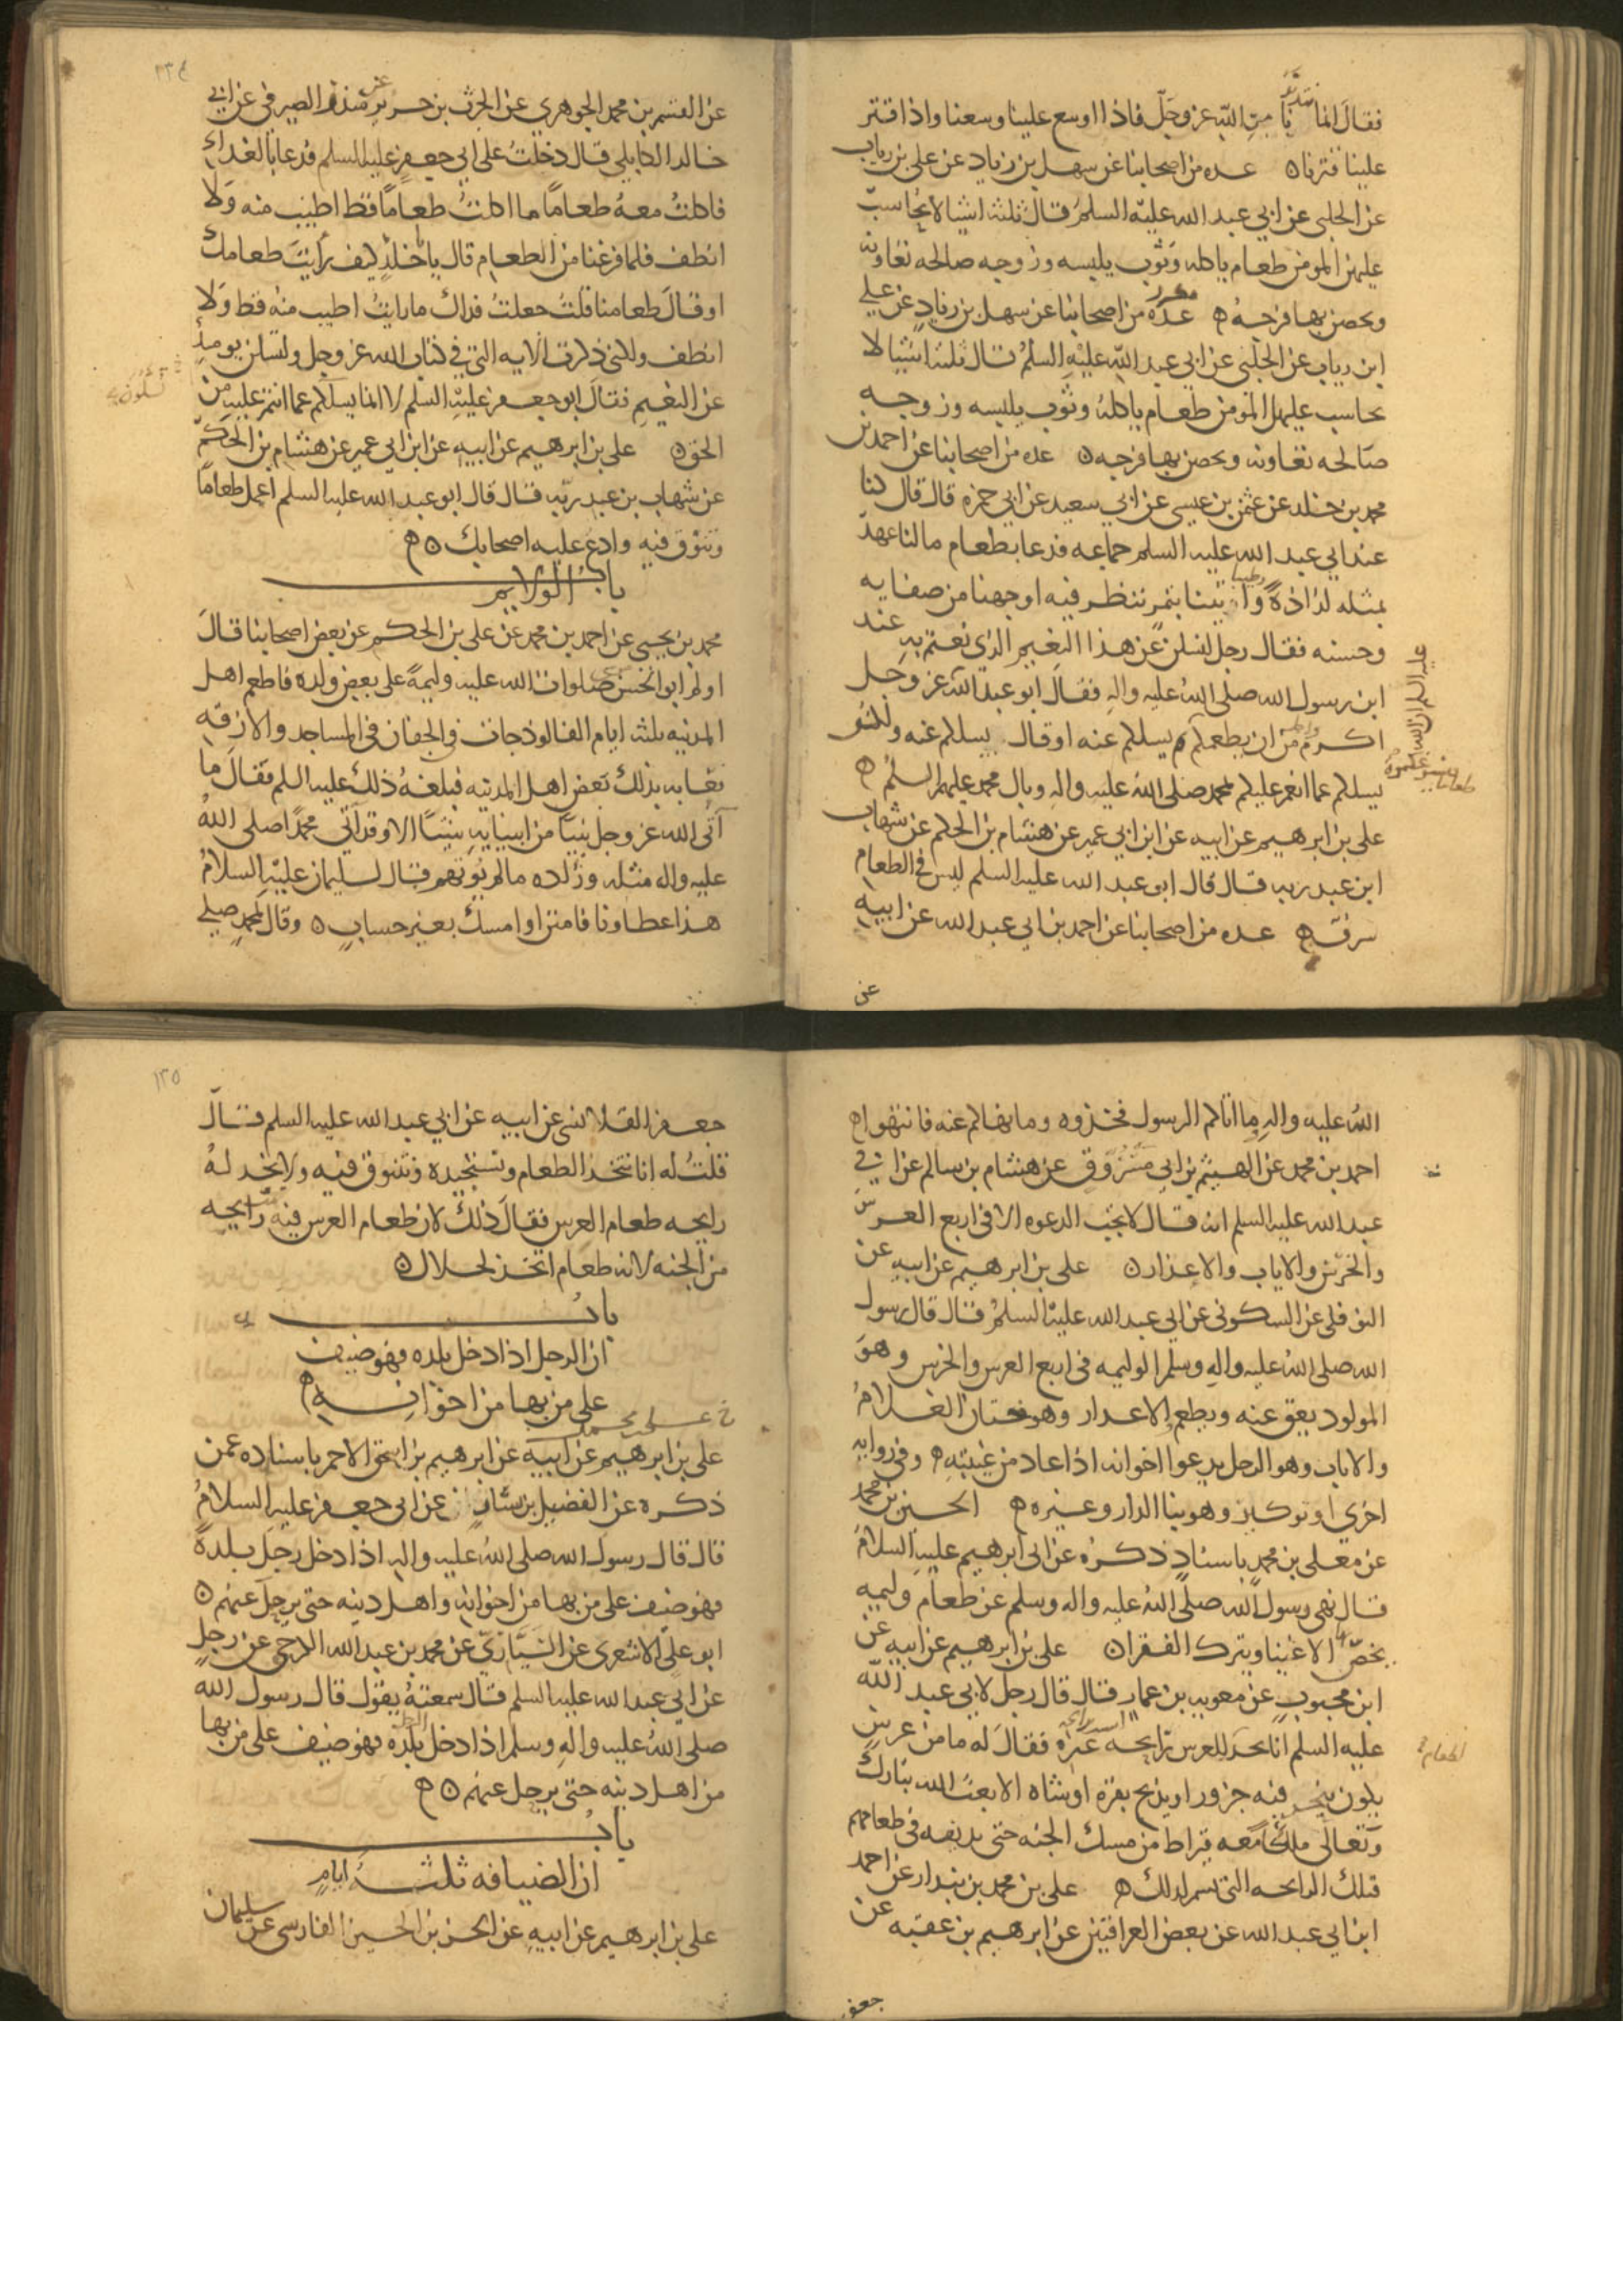 فقال انما تدبرنا من الله عز وجل فاذا اوسع علينا وسعنا واذا قتر
علينا قترنا ٥ عده من اصحابنا عن سهل بن زياد عن علي بن رياب
عن الحلبي عن ابي عبد الله عليه السلم قال ثلثه اشيا لا يحاسب
عليهن المومن طعام ياكله وثوب يلبسه وزوجه صالحه تعاونه
ويحصن بها فرجه ه عده من اصحابنا عن سهل بن زياد عن علي
مكرر
ابن رياب عن الحلبي عن ابي عبد الله عليه السلم قال ثلثه اشيا لا
يحاسب عليهن المومن طعام ياكله وثوب يلبسه وزوجه
صالحه تعاونه ويحصن بها فرجه ٥ عده من اصحابنا عن احمد بن
محمد بن خلد عن عثمن بن عيسى عن ابي سعيد عن ابي حمزه قال قال كنا
عند ابي عبد الله عليه السلم جماعه فدعا بطعام مالنا عهد
بمثله لذاذة وطيبا واتينا بتمر ننظر فيه اوجهنا من صفايه
وحسنه فقال رجل لتسلن عن هذا النعيم الذي نعمتم به عند
ابن رسول الله صلى الله عليه واله فقال ابو عبد الله عز وجل
عليه السلم ان الله
اكرم واجل من ان يطعمكم يسلكم عنه او قال يسلكم عنه ولكنه
طعاما فيسوغكموه
يسلكم عما انعم عليكم بمحمد صلى الله عليه واله وبال محمد عليهم السلم ه
علي بن ابرهيم عن ابيه عن ابن ابي عمير عن هشام بن الحكم عن شهاب
ابن عبد ربه قال قال ابو عبد الله عليه السلم ليس في الطعام
سرف ه عده من اصحابنا عن احمد بن ابي عبد الله عن ابيه
عن
٢٣٤
عن القسم بن محمد الجوهري عن الحرث بن حريز عن سدير الصيرفي عن ابي
خالد الكابلي قال دخلت على ابي جعفر عليه السلم فدعا بالغداء
فاكلت معه طعاما ما اكلت طعاما قط اطيب منه ولا
انظف فلما فرغنا من الطعام قال يا خلد كيف رايت طعامك
او قال طعامنا قلت جعلت فداك ما رايت اطيب منه قط ولا
انظف ولكني ذكرت الايه التي في كتاب الله عز وجل ولتسلن يوميذ
عن النعيم فقال ابو جعفر عليه السلم لا انما يسلكم عما انتم عليه من
الحق ٥ علي بن ابرهيم عن ابيه عن ابن ابي عمير عن هشام بن الحكم
عن شهاب بن عبد ربه قال قال ابو عبد الله عليه السلم اعمل طعاما
وتنوق فيه وادع عليه اصحابك ٥ ه
باب الولايم
محمد بن يحيى عن احمد بن محمد عن علي بن الحكم عن بعض اصحابنا قال
اولم ابو الحسن موسى صلوات الله عليه وليمة على بعض ولده فاطعم اهل
المدينه ثلثه ايام الفالوذجات في الجفان في المساجد والازقه
فعابه بذلك بعض اهل المدينه فبلغه ذلك عليه السلم فقال ما
آتى الله عز وجل نبيا من انبيايه شيئا الا وقد آتى محمدا صلى الله
عليه واله مثله وزاده مالم يوتهم قال لسليمان عليه السلام
هذا عطاونا فامنن او امسك بغير حساب ٥ وقال لمحمد صلى
الله عليه واله ما اتاكم الرسول فخذوه وما نهاكم عنه فانتهوا ه
احمد بن محمد عن الهيثم بن ابي مسروق عن هشام بن سالم عن ابي
عبد الله عليه السلم انه قال لا تجب الدعوه الا في اربع العرس
والخرس والاياب والاعذار ٥ علي بن ابرهيم عن ابيه عن
النوفلي عن السكوني عن ابي عبد الله عليه السلم قال قال رسول
الله صلى الله عليه واله وسلم الوليمه في اربع العرس والخرس وهو
المولود يعق عنه ويطعم والاعذار وهو ختان الغلام
والاياب وهو الرجل يدعو اخوانه اذا عاد من غيبته ه وفي روايه
اخرى او توكير وهو بنا الدار وغيره ه الحسين بن محمد
عن معلى بن محمد باسناد ذكره عن ابي ابرهيم عليه السلام
قال نهى رسول الله صلى الله عليه واله وسلم عن طعام وليمه
يخص بها الاغنيا ويترك الفقرا ٥ علي بن ابرهيم عن ابيه عن
ابن محبوب عن معويه بن عمار قال قال رجل لابي عبد الله
عليه السلم انا نجد للعرس رايحه غيره فقال له ما من عرس
لطعام
يكون ينحر فيه جزور او يذبح بقره او شاه الا بعث الله تبارك
وتعالى ملكا معه قيراط من مسك الجنه حتى يديفه في طعامهم
فتلك الرايحه التي تشم لذلك ه علي بن محمد بن بندار عن احمد
ابن ابي عبد الله عن بعض العراقيين عن ابرهيم بن عقبه عن
جعفر
١٣٥
جعفر القلانسي عن ابيه عن ابي عبد الله عليه السلم قال
قلت له انا نتخذ الطعام ونستجيده ونتنوق فيه ولا نجد له
رايحه طعام العرس فقال ذلك لان طعام العرس فيه رايحه
من الجنه لانه طعام اتخذ لحلال ٥
باب
ان الرجل اذا دخل بلده فهو ضيف
على من بها من اخوانه ه
علي بن ابرهيم عن ابيه عن ابرهيم بن اسحق الاحمر باسناده عمن
ذكره عن الفضيل بن يسار عن ابي جعفر عليه السلام
قال قال رسول الله صلى الله عليه واله اذا دخل رجل بلدة
فهو ضيف على من بها من اخوانه واهل دينه حتى يرحل عنهم ٥
ابو علي الاشعري عن السياري عن محمد بن عبد الله الكرخي عن رجل
عن ابي عبد الله عليه السلم قال سمعته يقول قال رسول الله
صلى الله عليه واله وسلم اذا دخل الرجل بلده فهو ضيف على من بها
من اهل دينه حتى يرحل عنهم ٥ ه
باب
ان الضيافه ثلثه ايام
علي بن ابرهيم عن ابيه عن الحسن بن الحسين الفارسي عن سليمان